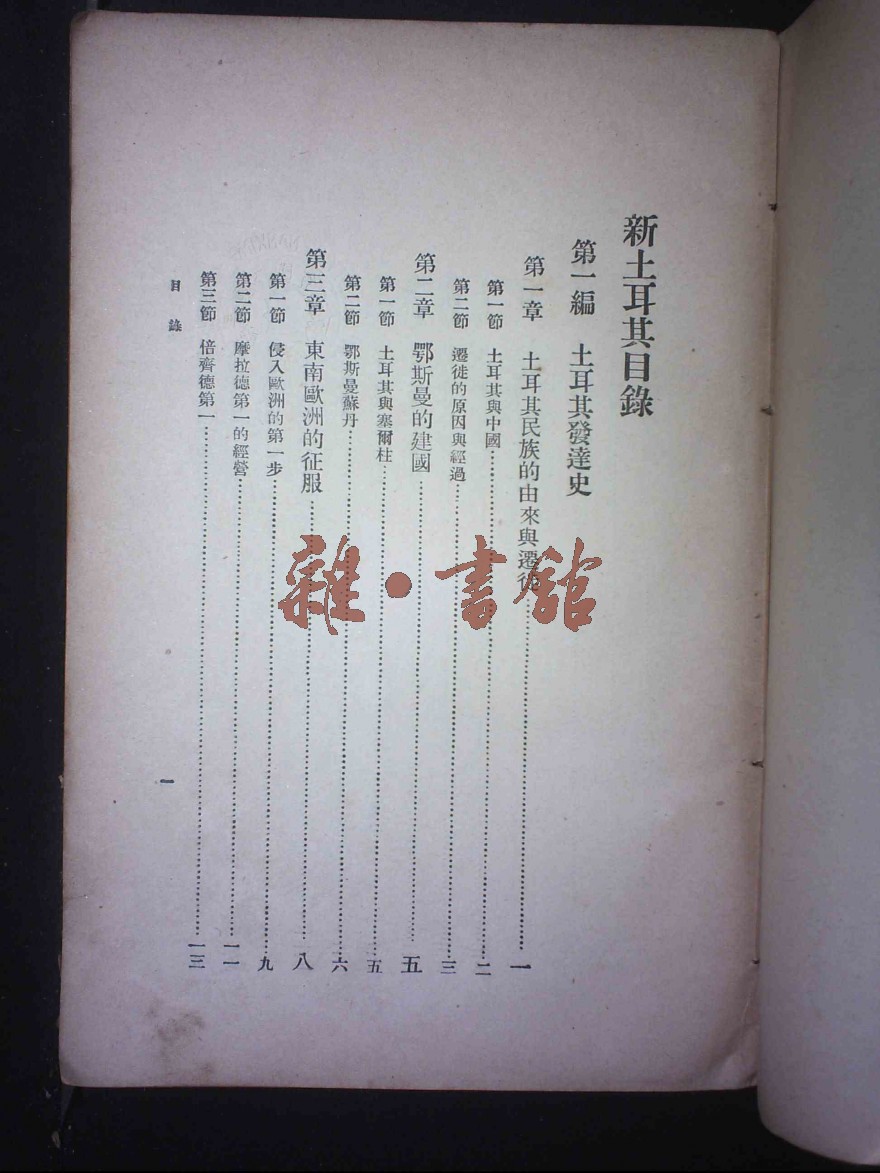 新土耳其目錄
第一編 土耳其發達史
第一章 土耳其民族的由來與遷徙……一
第一節 土耳其與中國……二
第二節 遷徙的原因與經過……三
第二章 鄂斯曼的建國……五
第一節 土耳其與塞爾柱……五
第二節 鄂斯曼蘇丹……六
第三章 東南歐洲的征服……八
第一節 侵入歐洲的第一步……九
第二節 摩拉德第一的經營……一一
第三節 倍齊德第一……一三
目錄
一
雜·書館